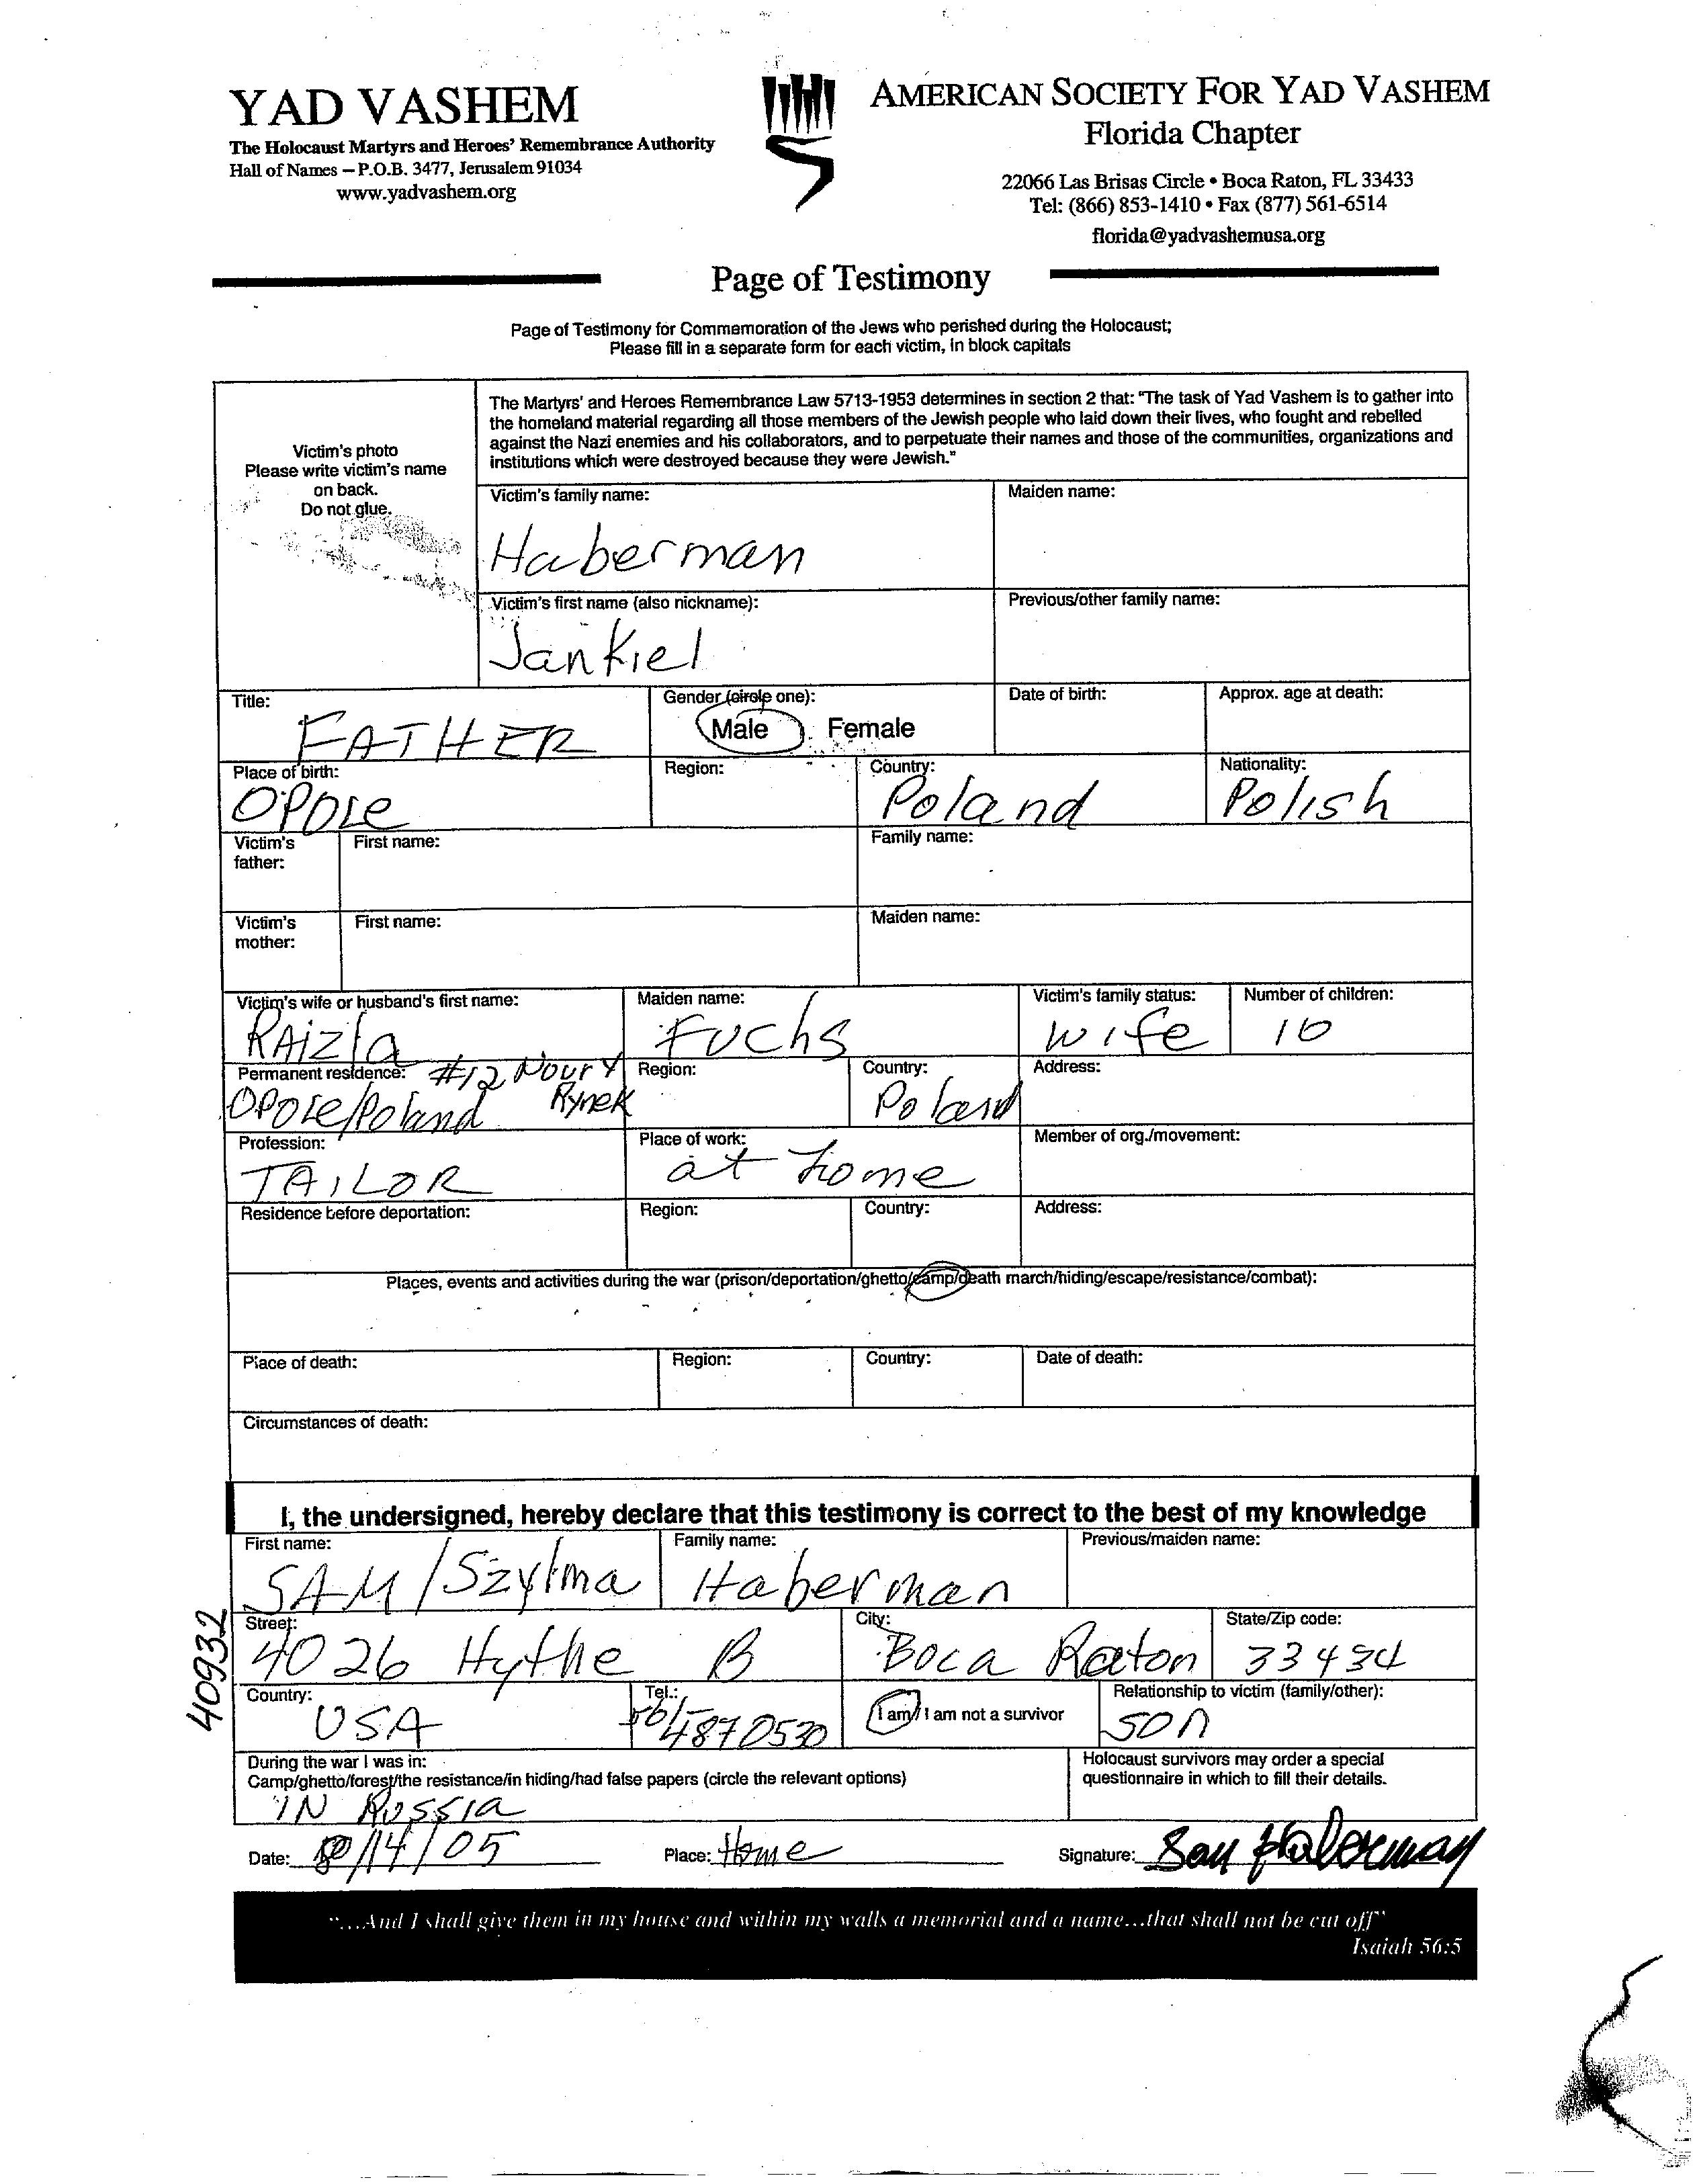 YAD VASHEM
The Holocaust Martyrs and Heroes' Remembrance Authority
Hall of Names – P.O.B. 3477, Jerusalem 91034
www.yadvashem.org
AMERICAN SOCIETY FOR YAD VASHEM
Florida Chapter
22066 Las Brisas Circle • Boca Raton, FL 33433
Tel: (866) 853-1410 • Fax (877) 561-6514
florida@yadvashemusa.org
Page of Testimony
Page of Testimony for Commemoration of the Jews who perished during the Holocaust;
Please fill in a separate form for each victim, in block capitals
Victim's photo
Please write victim's name
on back.
Do not glue.
The Martyrs' and Heroes Remembrance Law 5713-1953 determines in section 2 that: "The task of Yad Vashem is to gather into
the homeland material regarding all those members of the Jewish people who laid down their lives, who fought and rebelled
against the Nazi enemies and his collaborators, and to perpetuate their names and those of the communities, organizations and
institutions which were destroyed because they were Jewish."
Victim's family name: Maiden name:
Haberman
Victim's first name (also nickname): Previous/other family name:
Jankiel
Title: Gender (circle one): Date of birth: Approx. age at death:
FATHER Male Female
Place of birth: Region: Country: Nationality:
OPOLE Poland Polish
Victim's father: First name: Family name:
Victim's mother: First name: Maiden name:
Victim's wife or husband's first name: Maiden name: Victim's family status: Number of children:
RAIZLA Fuchs wife 10
Permanent residence: #12 Noury Region: Country: Address:
OPOLE/Poland Rynek Poland
Profession: Place of work: Member of org./movement:
TAILOR at home
Residence before deportation: Region: Country: Address:
Places, events and activities during the war (prison/deportation/ghetto/camp/death march/hiding/escape/resistance/combat):
Place of death: Region: Country: Date of death:
Circumstances of death:
I, the undersigned, hereby declare that this testimony is correct to the best of my knowledge
First name: Family name: Previous/maiden name:
SAM/Szylma Haberman
Street: City: State/Zip code:
4026 Hythe B Boca Raton 33434
Country: Tel.: I am/I am not a survivor Relationship to victim (family/other):
USA 561/4870530 son
During the war I was in: Holocaust survivors may order a special
Camp/ghetto/forest/the resistance/in hiding/had false papers (circle the relevant options) questionnaire in which to fill their details.
IN RUSSIA
Date: /14/05 Place: Home Signature: Sam Haberman
40932
"...And I shall give them in my house and within my walls a memorial and a name...that shall not be cut off"
Isaiah 56:5